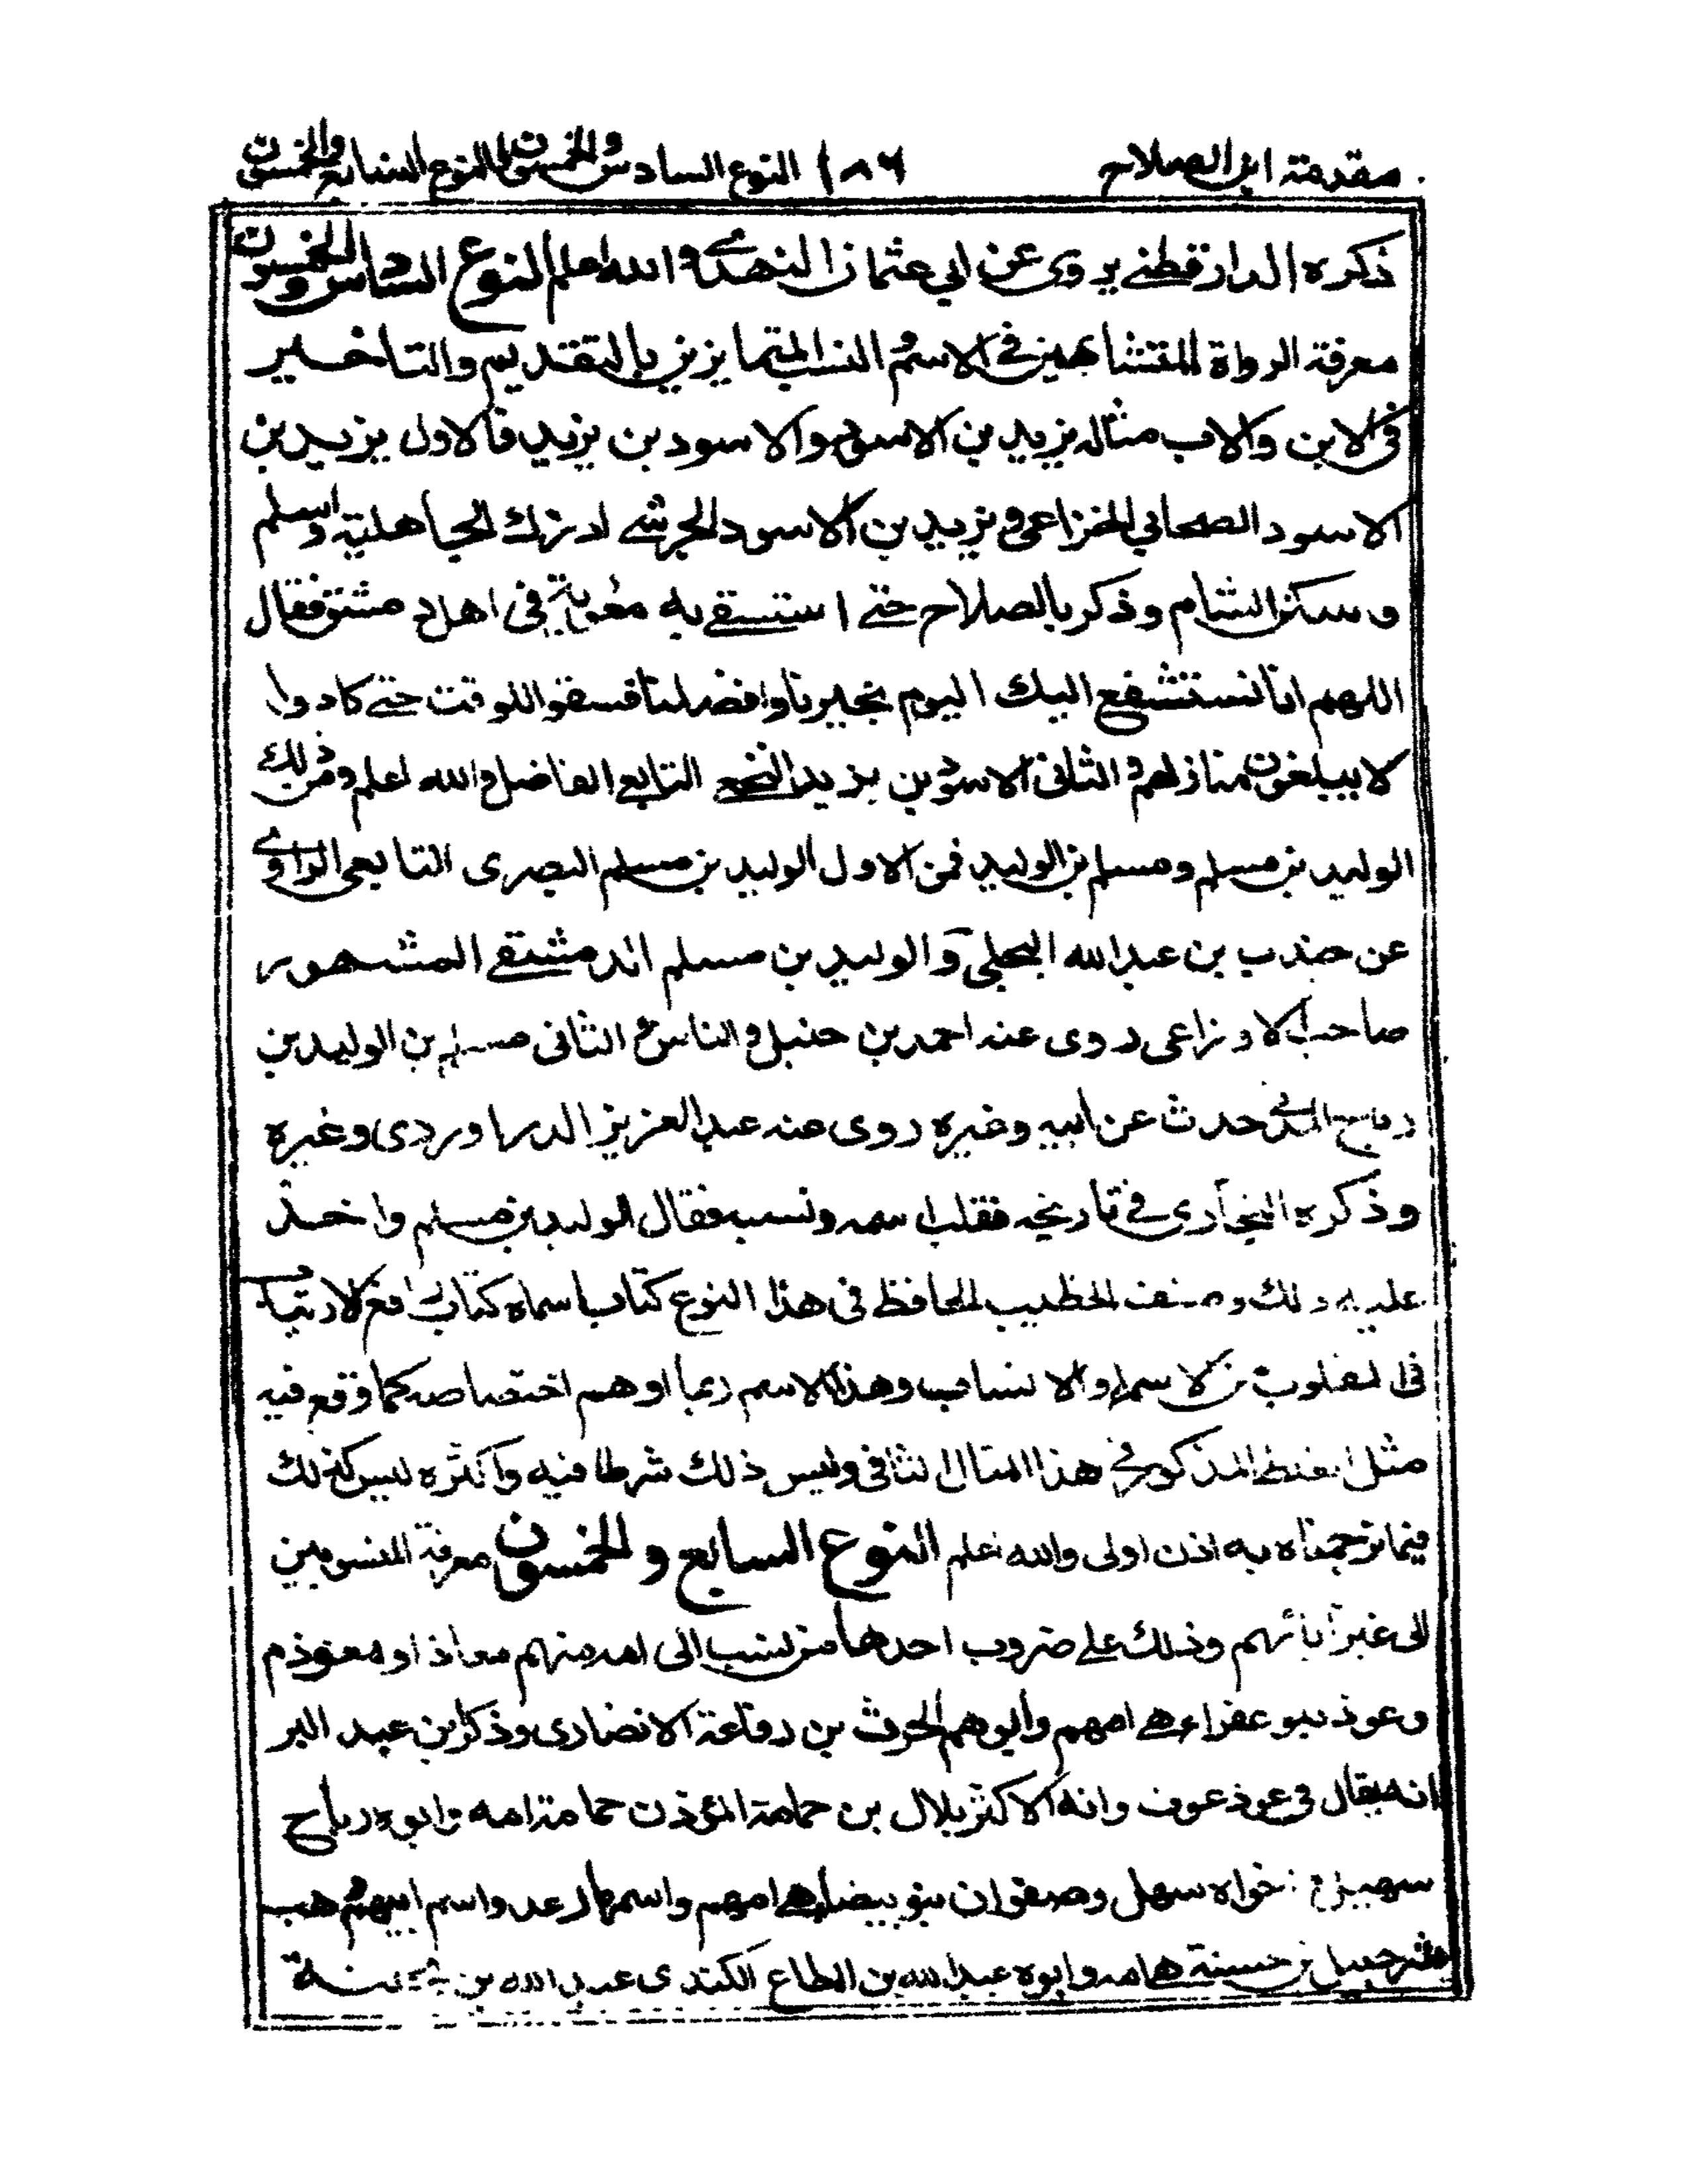 مقدمة ابن الصلاح ١٨٦ النوع السادس والخمسون النوع السابع والخمسون
ذكره الدارقطني يروى عن ابي عثمان النهدي والله اعلم النوع السادس والخمسون
معرفة الرواة المتشابهين في الاسم والنسب المتمايزين بالتقديم والتاخير
فى الابن والاب مثاله يزيد بن الاسود والاسود بن يزيد فالاول يزيد بن
الاسود الصحابي الخزاعى ويزيد بن الاسود الجرشي ادرك الجاهلية واسلم
وسكن الشام وذكر بالصلاح حتے استسقے به معوية فى اهل دمشق فقال
اللهم انا نستشفع اليك اليوم بخيرنا وافضلنا فسقوا للوقت حتے كادوا
لا يبلغون منازلهم والثانى الاسود بن يزيد النخعے التابعے الفاضل والله اعلم ومن ذلك
الوليد بن مسلم ومسلم بن الوليد فمن الاول الوليد بن مسلم البصرى التابعى الراوي
عن جندب بن عبد الله البجلي والوليد بن مسلم الدمشقے المشهور
صاحب الاوزاعى روى عنه احمد بن حنبل والناس الثانى مسلم بن الوليد بن
رباح المدني حدث عن ابيه وغيره روى عنه عبد العزيز الدراوردى وغيره
وذكره البخارى فے تاريخه فقلب اسمه ونسبه فقال الوليد بن مسلم واخذ
عليه ذلك وصنف الخطيب الحافظ فى هذا النوع كتابا سماه كتاب رافع الارتياب
فى المقلوب من الاسماء والانساب وهذا الاسم ربما اوهم اختصاصه بما وقع فيه
مثل الغلط المذكور في هذا المثال الثانى وليس ذلك شرطا فيه واكثره ليس كذلك
فيما ترجمناه به اذن اولى والله اعلم النوع السابع والخمسون معرفة المنسوبين
الى غير آبائهم وذلك على ضروب احدها من نسب الى امه منهم معاذ او معوذ
وعوذ بنو عفراء هے امهم وابوهم الحرث بن رفاعة الانصارى وذكر ابن عبد البر
انه يقال فى عوذ عوف وانه الاكثر بلال بن حمامة المؤذن حمامة امه وابوه رباح
سهيل و اخواه سهل وصفوان بنو بيضاء هے امهم واسمها دعد واسم ابيهم وهب
شرحبيل بن حسنة هے امه وابوه عبد الله بن المطاع الكندى عبد الله بن